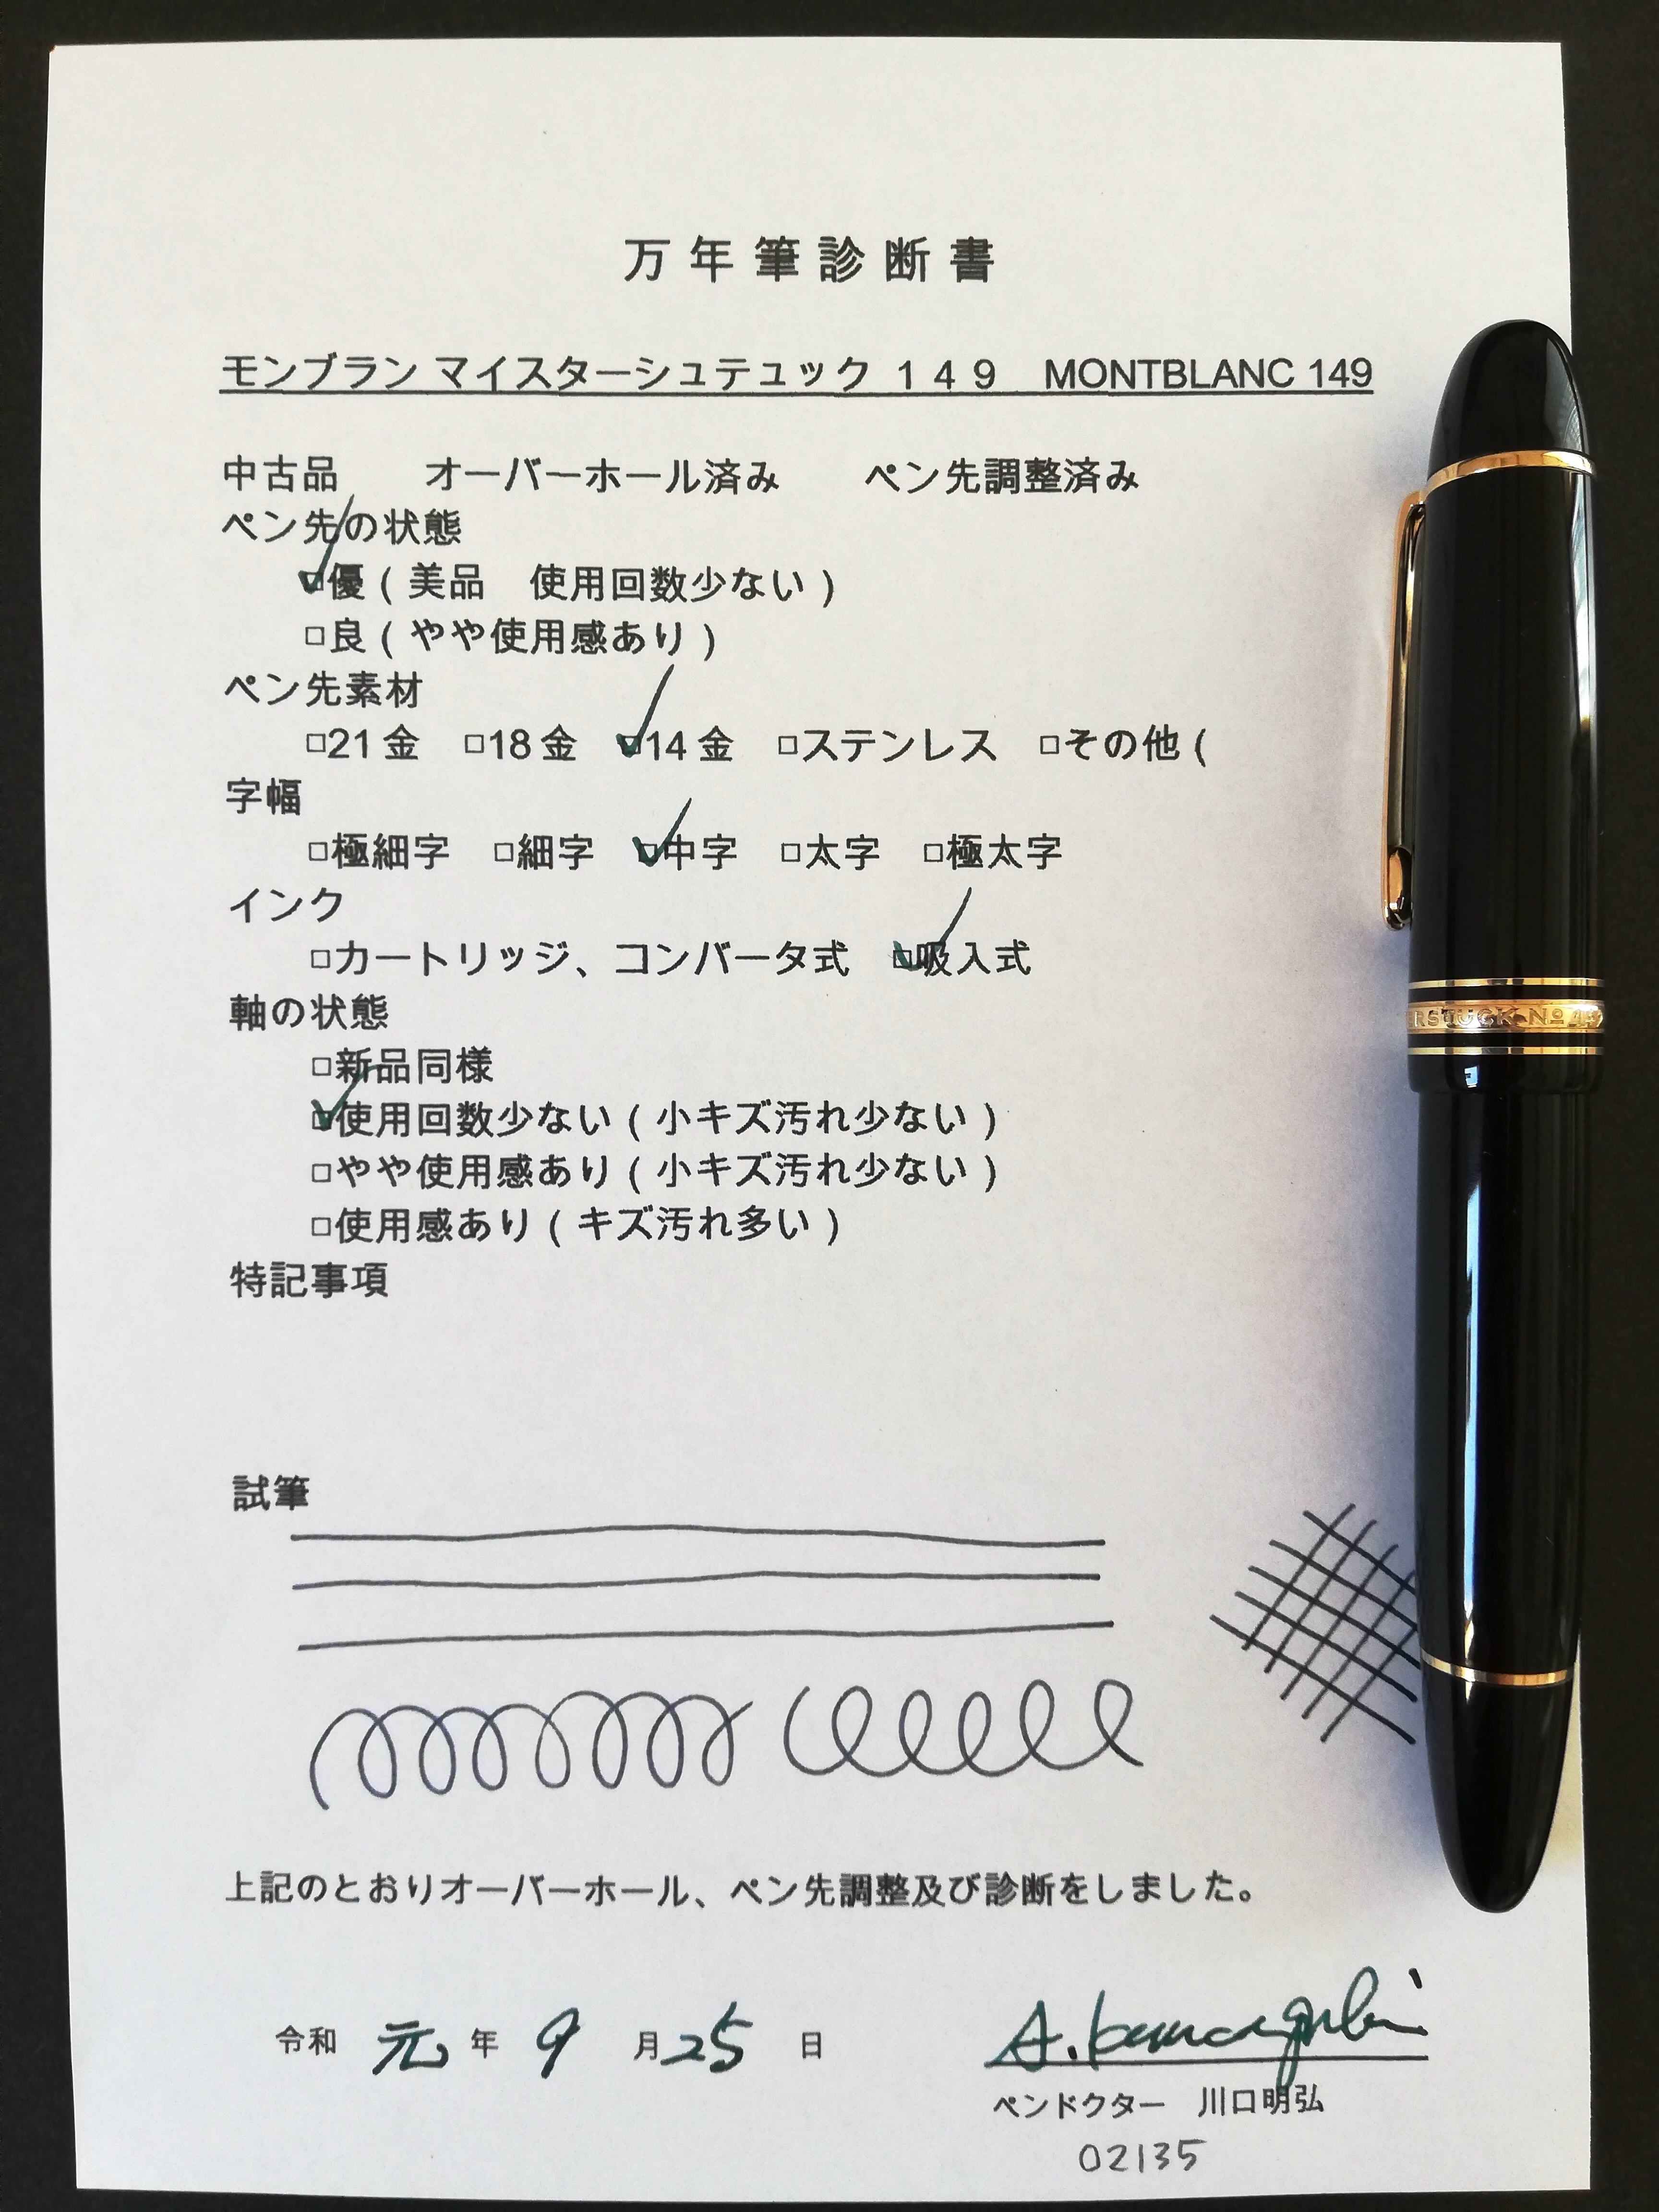 万年筆診断書
モンブラン マイスターシュテュック １４９　MONTBLANC 149
中古品　　オーバーホール済み　　ペン先調整済み
ペン先の状態
☑優（美品　使用回数少ない）
□良（やや使用感あり）
ペン先素材
□21金　□18金　☑14金　□ステンレス　□その他（
字幅
□極細字　□細字　☑中字　□太字　□極太字
インク
□カートリッジ、コンバータ式　☑吸入式
軸の状態
□新品同様
☑使用回数少ない（小キズ汚れ少ない）
□やや使用感あり（小キズ汚れ少ない）
□使用感あり（キズ汚れ多い）
特記事項
試筆
上記のとおりオーバーホール、ペン先調整及び診断をしました。
令和 元 年 9 月 25 日
A. Kawaguchi
ペンドクター　川口明弘
02135
ERSTÜCK Nº 149